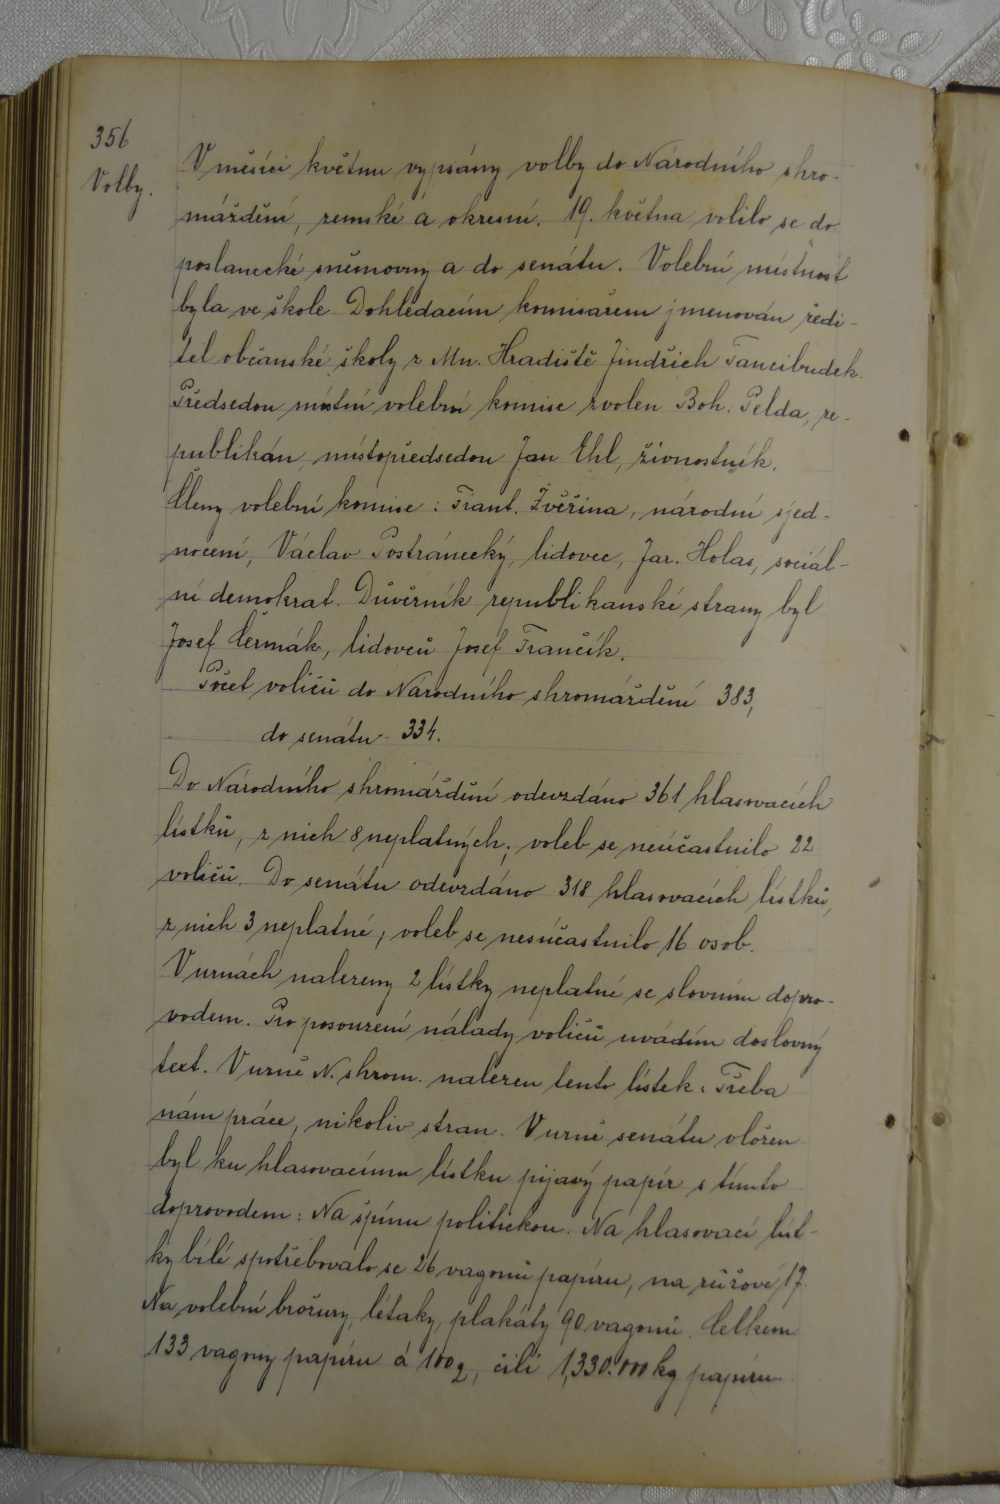 356
Volby.
V měsíci květnu vypsány volby do Národního shro-
máždění, zemské a okresní. 19. května volilo se do
poslanecké sněmovny a do senátu. Volební místnost
byla ve škole. Dohlédacím komisařem jmenován ředi-
tel občanské školy z Mn. Hradiště Jindřich Tancibudek.
Předsedou místní volební komise zvolen Boh. Pelda, re-
publikán, místopředsedou Jan Ehl, živnostník.
Členy volební komise: Frant. Zvěřina, národní sjed-
nocení, Václav Postránecký, lidovec, Jar. Holas, sociál-
ní demokrat. Důvěrník republikanské strany byl
Josef Čermák, lidovců Josef Frančík.
Počet voličů do Národního shromáždění 383,
do senátu - 334.
Do Národního shromáždění odevzdáno 361 hlasovacích
lístků, z nich 8 neplatných; voleb se neúčastnilo 22
voličů. Do senátu odevzdáno 318 hlasovacích lístků,
z nich 3 neplatné; voleb se nesúčastnilo 16 osob.
V urnách nalezeny 2 lístky neplatné se slovním dopro-
vodem. Pro posouzení nálady voličů uvádím doslovný
text. V urně N. shrom. nalezen tento lístek: Třeba
nám práce, nikoliv stran. V urně senátu vložen
byl ku hlasovacímu lístku pijavý papír s tímto
doprovodem: Na špínu politickou. Na hlasovací líst-
ky bílé spotřebovalo se 26 vagonů papíru, na růžové 17.
Na volební brožury, létaky, plakáty 90 vagonů. Celkem
133 vagony papíru á 100 q, čili 1,330.000 kg papíru